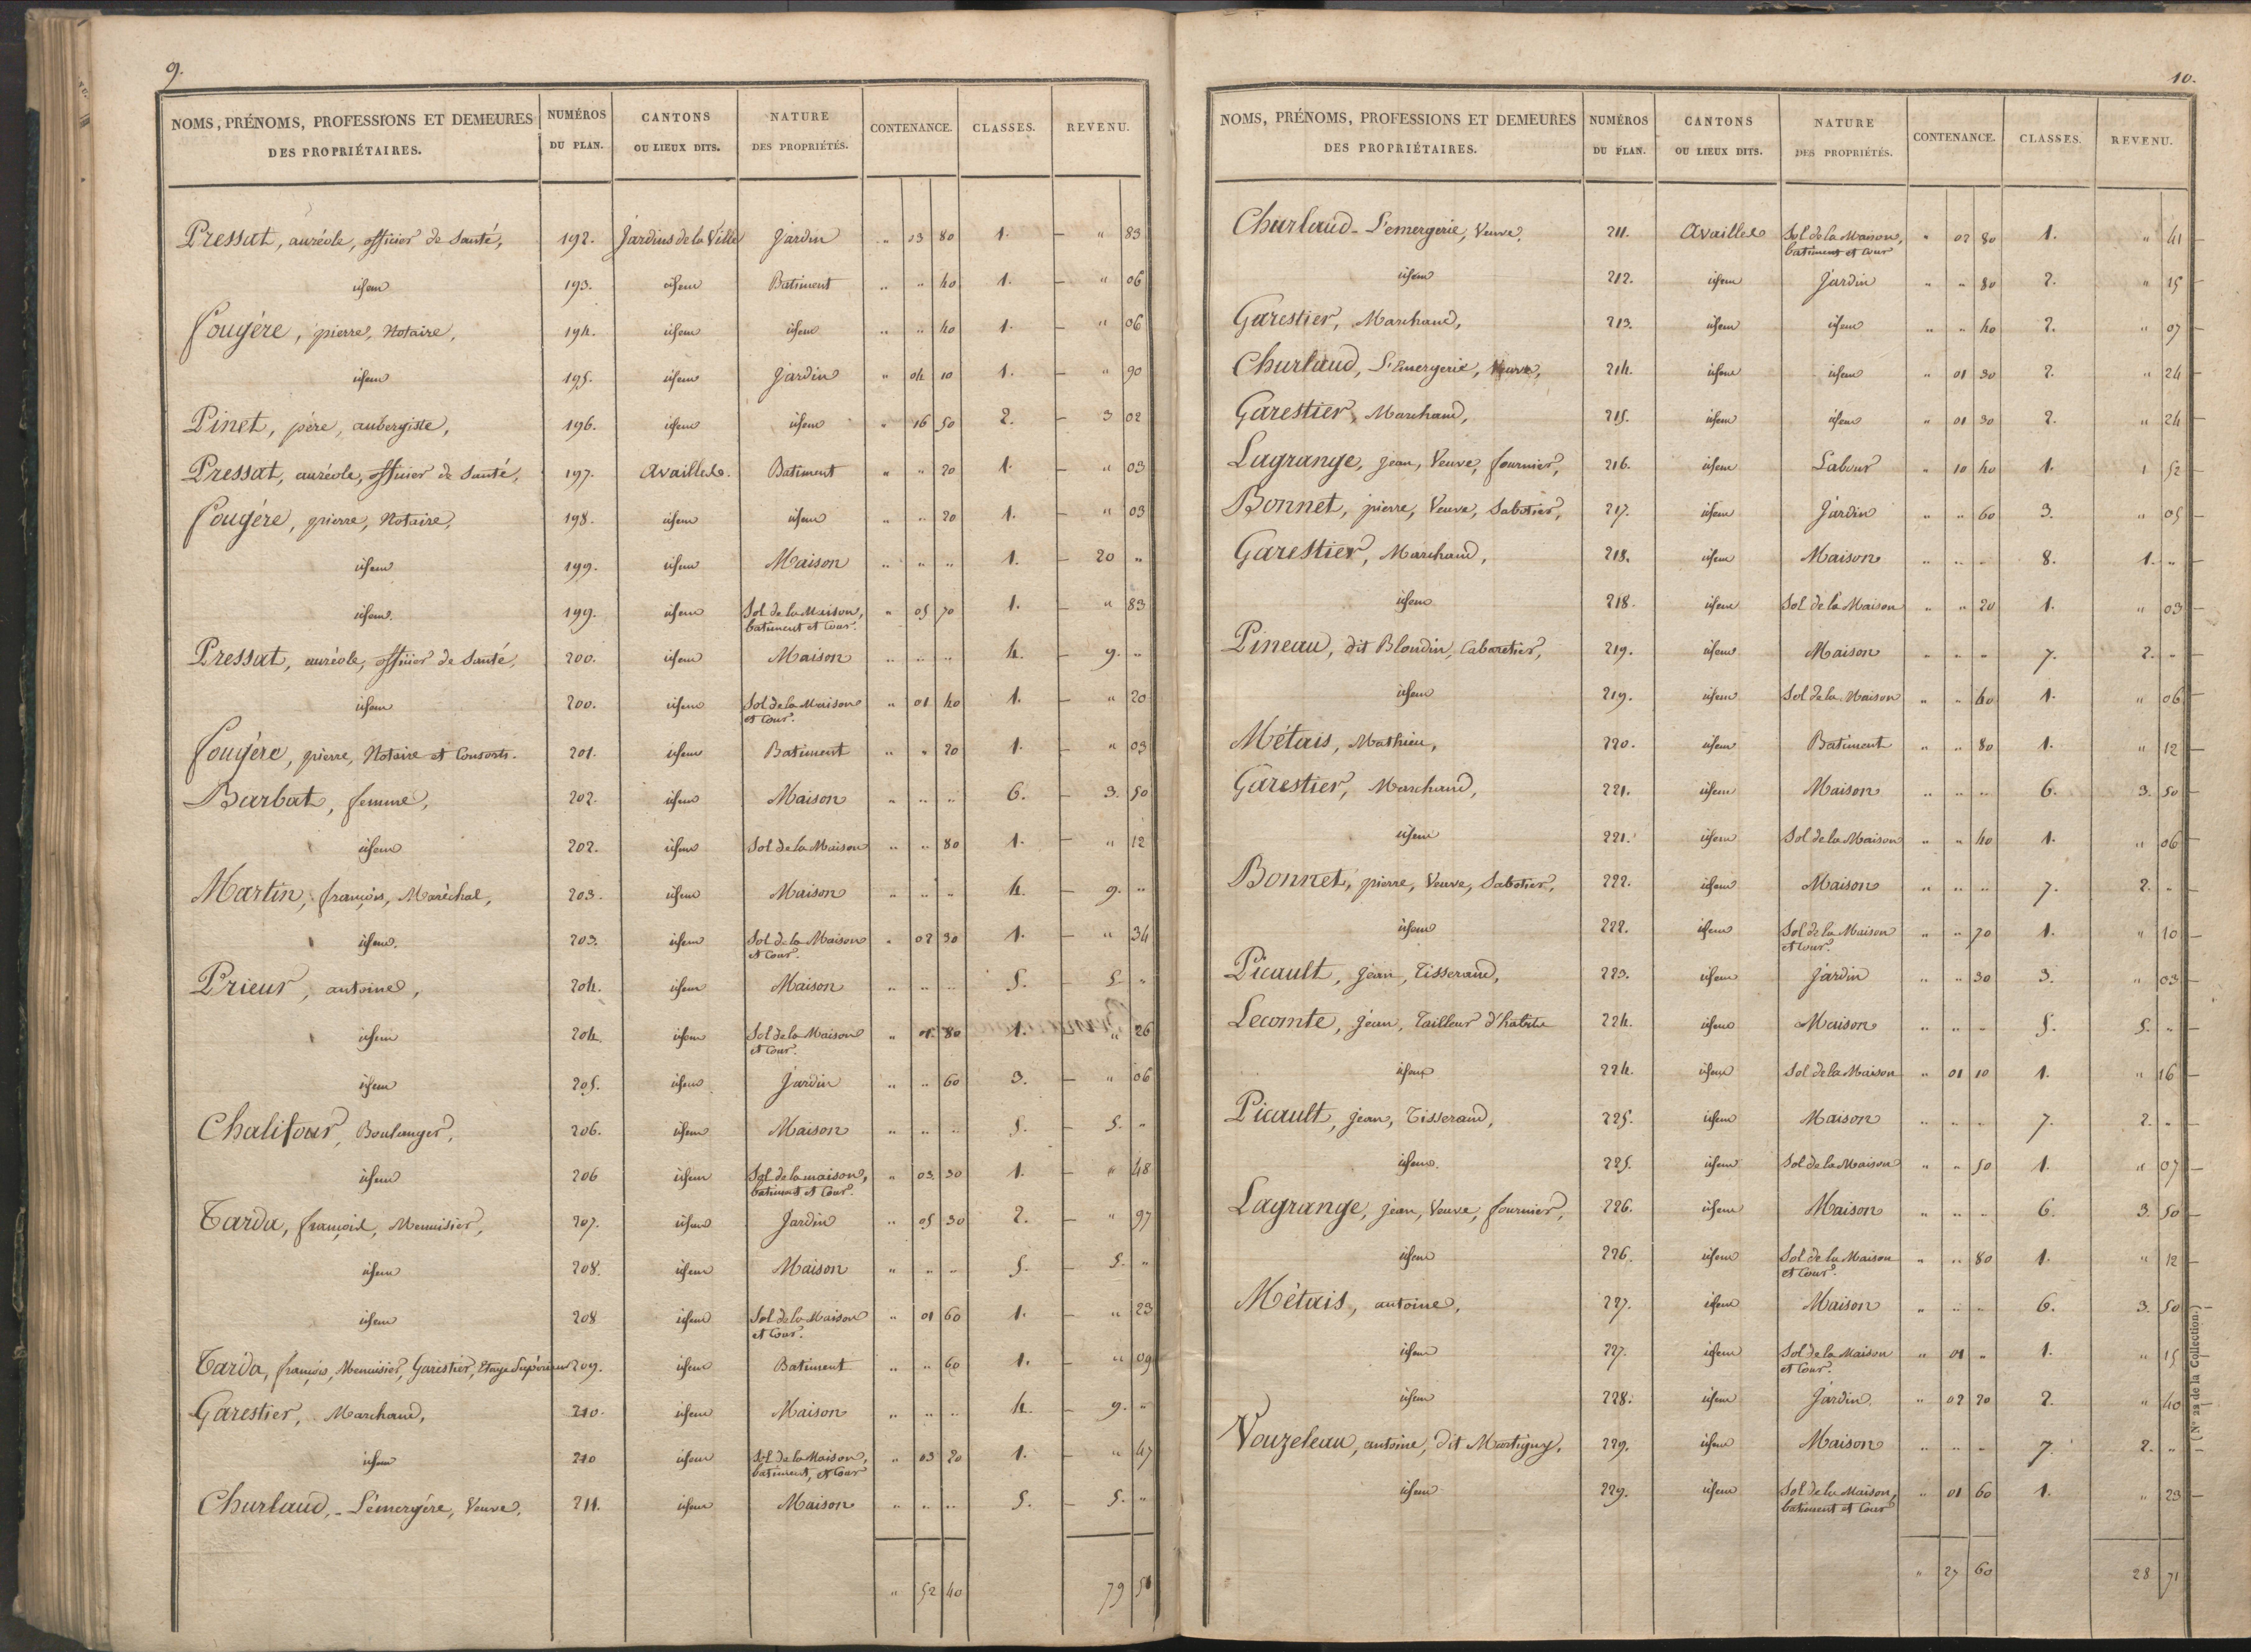 9.
NOMS, PRÉNOMS, PROFESSIONS ET DEMEURES DES PROPRIÉTAIRES. NUMÉROS DU PLAN. CANTONS OU LIEUX DITS. NATURE DES PROPRIÉTÉS. CONTENANCE. CLASSES. REVENU.
Pressat, auréole, officier de Santé, 192. Jardins de la Ville Jardin " 13 80 1. — " 83
idem 193. idem Batiment " " 40 1. — " 06
fougère, pierre, Notaire, 194. idem idem " " 40 1. — " 06
idem 195. idem Jardin " 04 10 1. — " 90
Pinet, père, aubergiste, 196. idem idem " 16 50 2. — 3 02
Pressat, auréole, officier de Santé, 197. availles. Batiment " " 20 1. — " 03
fougère, pierre, Notaire, 198. idem idem " " 20 1. — " 03
idem 199. idem Maison " " " 1. — 20 "
idem. 199. idem Sol de la Maison, batiment et Cour. " 05 70 1. — " 83
Pressat, auréole, officier de Santé, 200. idem Maison " " " 4. — 9. "
idem 200. idem Sol de la Maison et Cour. " 01 40 1. — " 20
fougère, pierre, Notaire et Consorts. 201. idem Batiment " " 20 1. — " 03
Barbat, femme, 202. idem Maison " " " 6. — 3. 50
idem 202. idem Sol de la Maison " " 80 1. — " 12
Martin, françois, Maréchal, 203. idem Maison " " " 4. — 9. "
idem. 203. idem Sol de la Maison et Cour. " 02 30 1. — " 34
Prieur, antoine, 204. idem Maison " " " 5. — 5. "
idem 204. idem Sol de la Maison et Cour. " 01 80 1. " 26
idem 205. idem Jardin " " 60 3. — " 06
Chalifour, Boulanger, 206. idem Maison " " " 5. — 5. "
idem 206 idem Sol de la maison, batiment et Cour. " 03 30 1. — " 48
Tarda, françois, Menuisier, 207. idem Jardin " 05 30 2. — " 97
idem 208. idem Maison " " " 5. — 5. "
idem 208 idem Sol de la Maison et Cour. " 01 60 1. — " 23
Tarda, françois, Menuisier, Garestier, Etage Supérieur 209. idem Batiment " " 60 1. — " 09
Garestier, Marchand, 210. idem Maison " " " 4. — 9. "
idem 210 idem Sol de la Maison, batiment, et Cour " 03 20 1. — " 47
Churlaud,- L'émergère, Veuve, 211. idem Maison " " " 5. — 5. "
" 52 40 79 51
10.
NOMS, PRÉNOMS, PROFESSIONS ET DEMEURES DES PROPRIÉTAIRES. NUMÉROS DU PLAN. CANTONS OU LIEUX DITS. NATURE DES PROPRIÉTÉS. CONTENANCE. CLASSES. REVENU.
Churlaud- L'emergerie, Veuve, 211. availles Sol de la Maison, batiment et Cour " 02 80 1. " 41
idem 212. idem Jardin " " 80 2. " 15
Garestier, Marchand, 213. idem idem " " 40 2. " 07
Churlaud, L'Emergerie, Veuve, 214. idem idem " 01 30 2. " 24
Garestier, Marchand, 215. idem idem " 01 30 2. " 24
Lagrange, jean, Veuve, fournier, 216. idem Labour " 10 40 1. 1 52
Bonnet, pierre, Veuve, Sabotier, 217. idem Jardin " " 60 3. " 05
Garestier, Marchand, 218. idem Maison " " " 8. 1. "
idem 218. idem Sol de la Maison " " 20 1. " 03
Pineau, dit Blondin, Cabaretier, 219. idem Maison " " " 7. 2. "
idem 219. idem Sol de la Maison " " 40 1. " 06
Métais, Mathieu, 220. idem Batiment " " 80 1. " 12
Garestier, Marchand, 221. idem Maison " " " 6. 3. 50
idem 221. idem Sol de la Maison " " 40 1. " 06
Bonnet, pierre, Veuve, Sabotier, 222. idem Maison " " " 7. 2. "
idem 222. idem Sol de la Maison et Cour. " " 70 1. " 10
Picault, jean, Tisserand, 223. idem Jardin " " 30 3. " 03
Lecomte, jean, Tailleur d'habits 224. idem Maison " " " 5. 5. "
idem 224. idem Sol de la Maison " 01 10 1. " 16
Picault, jean, Tisserand, 225. idem Maison " " " 7. 2. "
idem. 225. idem Sol de la Maison " " 50 1. " 07
Lagrange, jean, Veuve, fournier, 226. idem Maison " " " 6. 3. 50
idem 226. idem Sol de la Maison et Cour. " " 80 1. " 12
Métais, antoine, 227. idem Maison " " " 6. 3. 50
idem 227. idem Sol de la Maison et Cour. " 01 " 1. " 15
idem 228. idem Jardin. " 02 20 2. " 40
Vouzeleau, antoine, dit Martigny, 229. idem Maison " " " 7. 2. "
idem 229. idem Sol de la Maison, batiment et Cour " 01 60 1. " 23
" 27 60 28 71
(N° 22 de la Collection.)